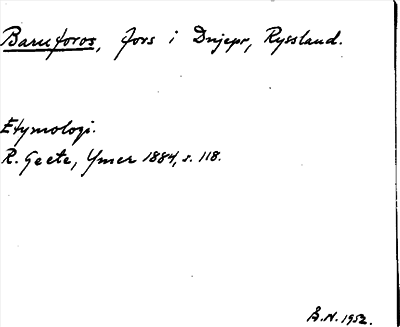 Baruforos, fors i Dnjepr, Ryssland.
Etymologi.
R. Geete, Ymer 1884, s. 118.
Å.N. 1952.